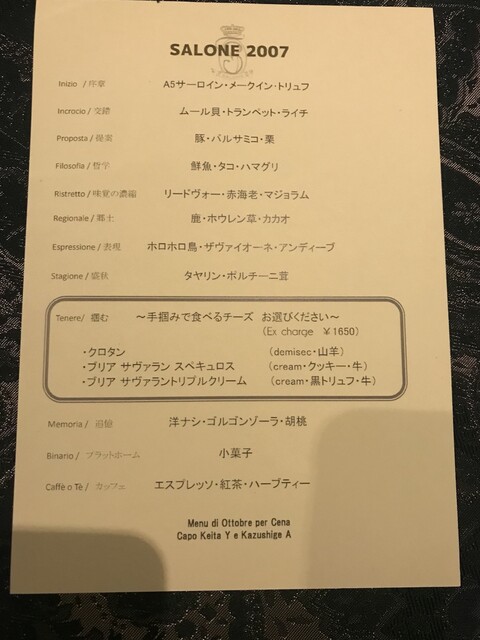 SALONE 2007
Inizio / 序章 A5サーロイン・メークイン・トリュフ
Incrocio / 交錯 ムール貝・トランペット・ライチ
Proposta / 提案 豚・バルサミコ・栗
Filosofia / 哲学 鮮魚・タコ・ハマグリ
Ristretto / 味覚の濃縮 リードヴォー・赤海老・マジョラム
Regionale / 郷土 鹿・ホウレン草・カカオ
Espressione / 表現 ホロホロ鳥・ザヴァイオーネ・アンディーブ
Stagione / 盛秋 タヤリン・ポルチーニ茸
Tenere / 掴む ～手掴みで食べるチーズ お選びください～
(Ex charge ￥1650)
・クロタン (demisec・山羊)
・ブリア サヴァラン スペキュロス (cream・クッキー・牛)
・ブリア サヴァラントリプルクリーム (cream・黒トリュフ・牛)
Memoria / 追憶 洋ナシ・ゴルゴンゾーラ・胡桃
Binario / プラットホーム 小菓子
Caffè o Tè / カッフェ エスプレッソ・紅茶・ハーブティー
Menu di Ottobre per Cena
Capo Keita Y e Kazushige A